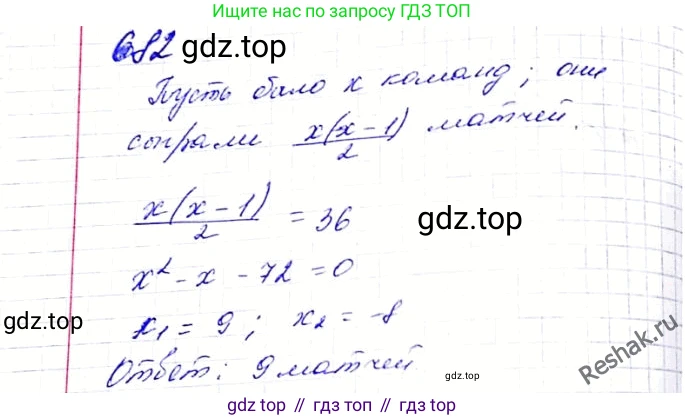 Ищите нас по запросу ГДЗ ТОП
682 gdz.top
Пусть было x команд; они
сыграли x(x-1)/2 матчей.
x(x-1)/2 = 36
gdz.top
x² - x - 72 = 0
gdz.top
x₁ = 9; x₂ = -8
Reshak.ru
Ответ: 9 матчей
gdz.top
gdz.top // гдз.топ // гдз.top